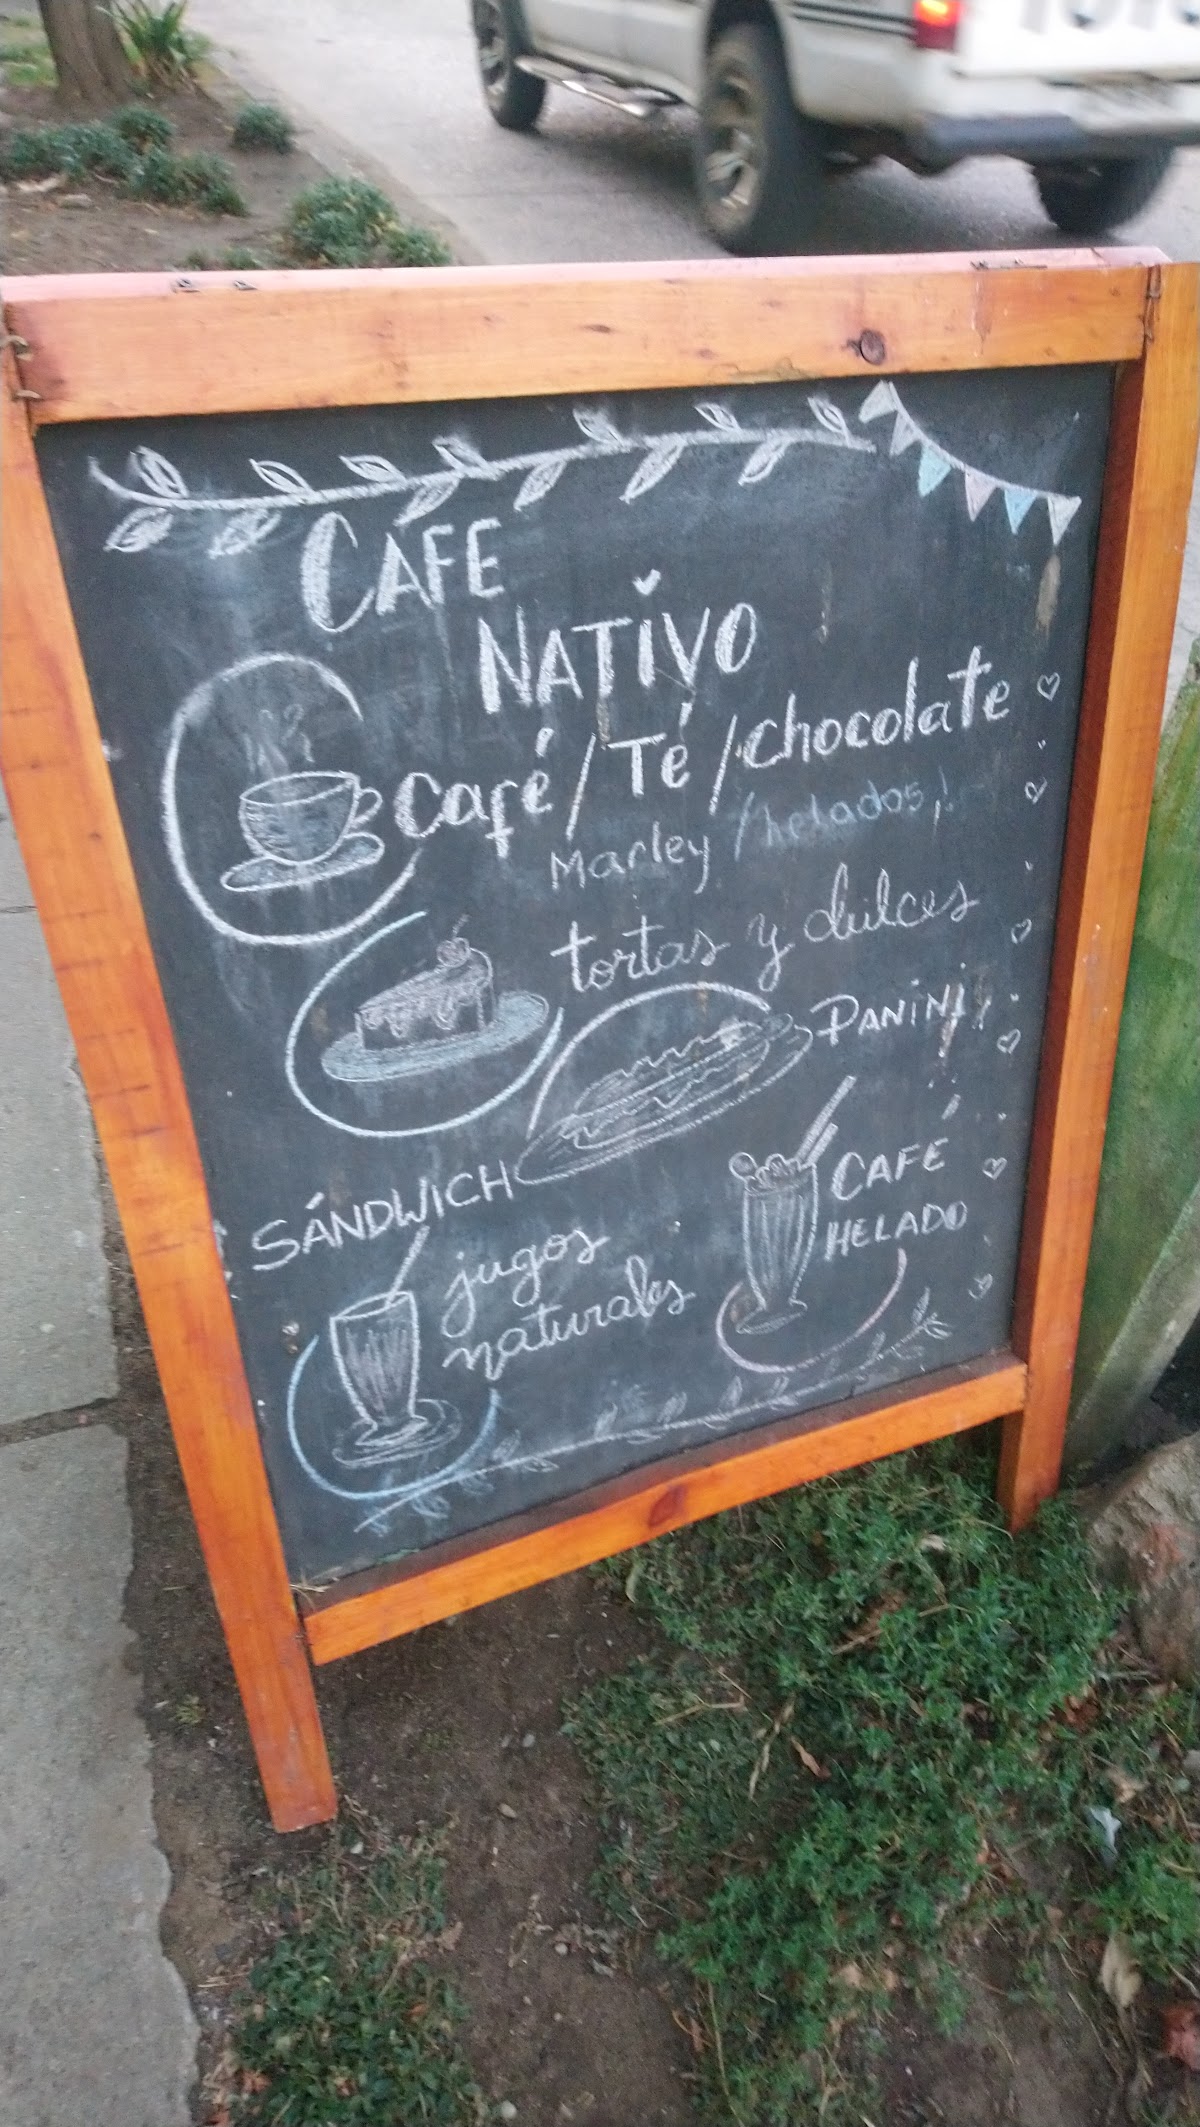 CAFE
NATIVO
Café / Té / chocolate
Marley / helados
tortas y dulces
PANINI
SÁNDWICH
CAFÉ
HELADO
jugos
naturales